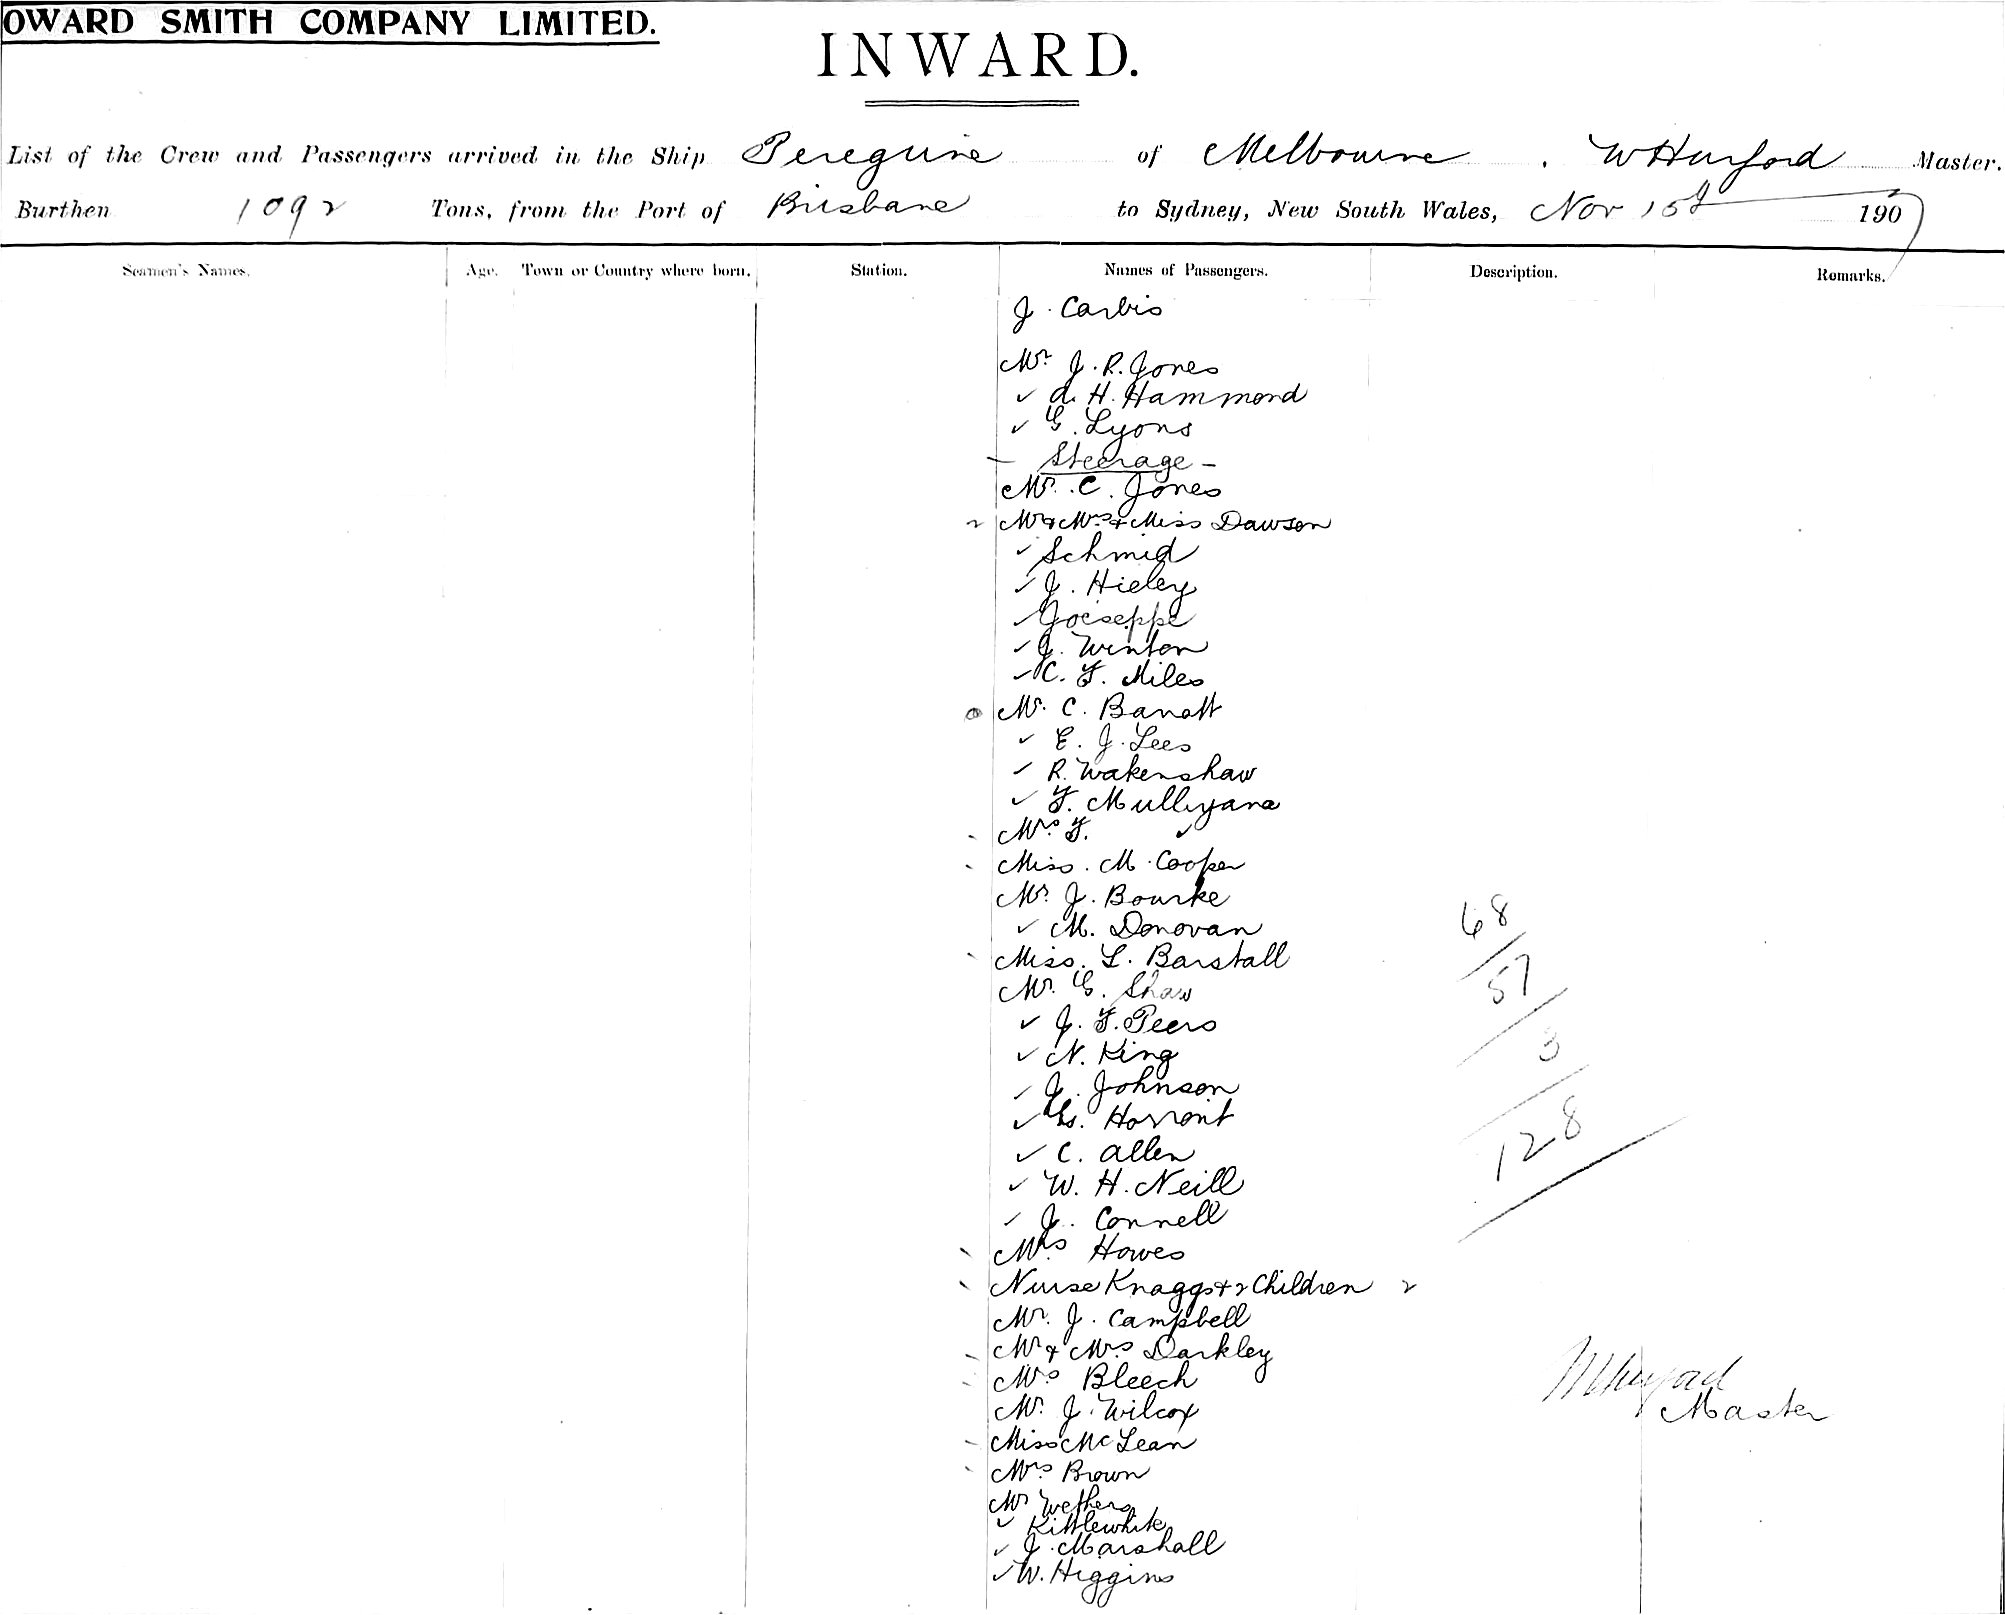 OWARD SMITH COMPANY LIMITED.
INWARD.
List of the Crew and Passengers arrived in the Ship Peregrine of Melbourne . W Hurford Master.
Burthen 1092 Tons, from the Port of Brisbane to Sydney, New South Wales, Nov 15th 1907
Seamen's Names. Age. Town or Country where born. Station. Names of Passengers. Description. Remarks.
J. Carbis
Mr. J. R. Jones
✓ A. H. Hammond
✓ G. Lyons
— Steerage —
Mr. C. Jones
2 Mr & Mrs & Miss Dawson
✓ Schmid
✓ J. Hieley
✓ Joeseppe
✓ J. Winton
✓ C. F. Miles
Mr. C. Barratt
✓ E. J. Lees
✓ R. Wakenshaw
✓ F. Mullyana
Mrs F. ✓
Miss. M. Cooper
Mr. J. Bourke
68
✓ M. Donovan
Miss. L. Barstall
57
Mr. G. Shaw
✓ J. F. Peers
3
✓ N. King
✓ J. Johnson
✓ Horront
128
✓ C. Allen
✓ W. H. Neill
✓ J. Connell
Mrs Howes
Nurse Knaggs & 2 Children 2
Mr. J. Campbell
Mr & Mrs Darkley
Mrs Bleech
W Hurford
Mr. J. Wilcox
Master
Miss McLean
Mrs Brown
Mr Wethers
✓ Kittlewhite
✓ J. Marshall
✓ W. Higgins